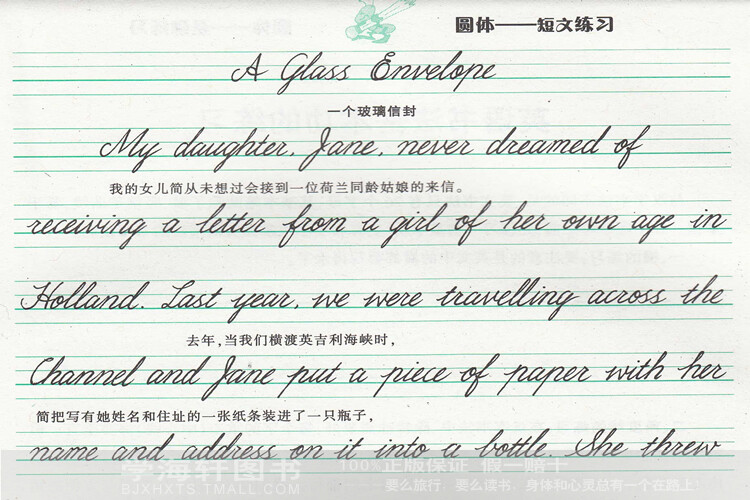 圆体——短文练习
A Glass Envelope
一个玻璃信封
My daughter, Jane, never dreamed of
我的女儿简从未想过会接到一位荷兰同龄姑娘的来信。
receiving a letter from a girl of her own age in
Holland. Last year, we were travelling across the
去年，当我们横渡英吉利海峡时，
Channel and Jane put a piece of paper with her
简把写有她姓名和住址的一张纸条装进了一只瓶子，
name and address on it into a bottle. She threw
学海轩图书 100%正版保证 假一赔十
BJXHXTS.TMALL.COM ——要么旅行，要么读书，身体和心灵总有一个在路上！